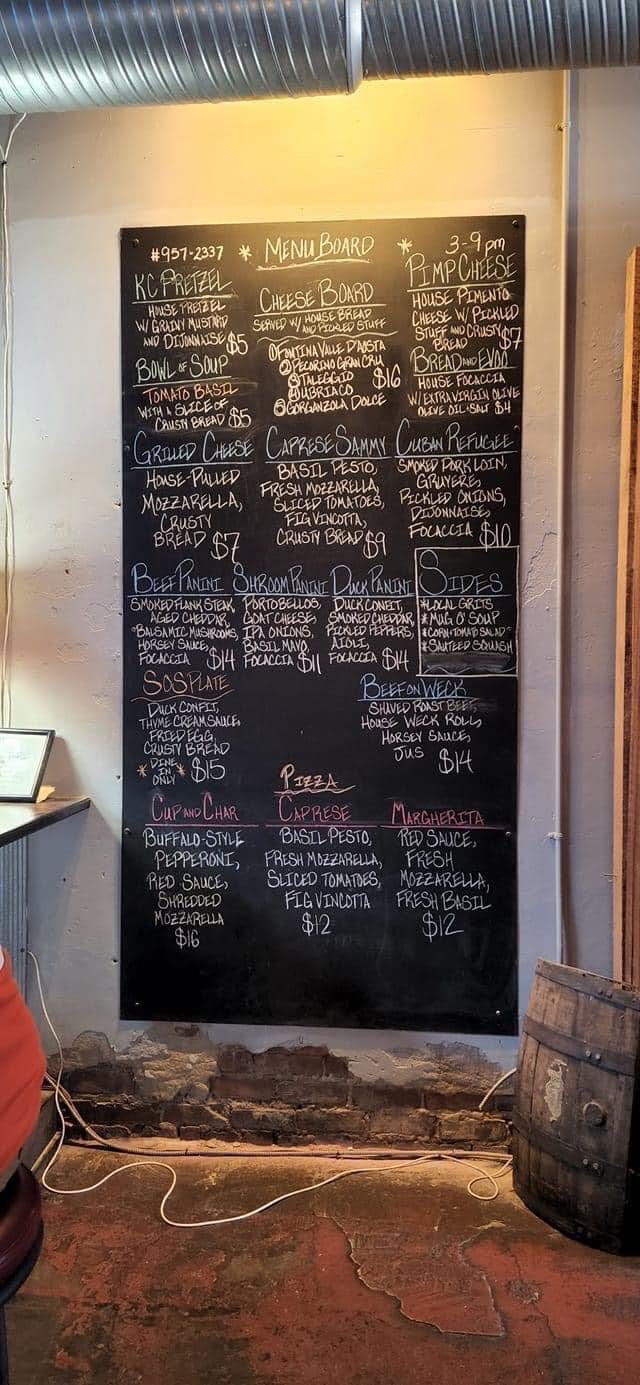 #957-2337 * MENU BOARD * 3-9 pm
KC PRETZEL
HOUSE PRETZEL
W/ GRAINY MUSTARD
AND DIJONNAISE $5
BOWL OF SOUP
TOMATO BASIL
WITH A SLICE OF
CRUSTY BREAD $5
CHEESE BOARD
SERVED W/ HOUSE BREAD
AND PICKLED STUFF
① FONTINA VALLE D'AOSTA
② PECORINO GRAN CRU
③ TALEGGIO $16
④ UBRIACO
⑤ GORGANZOLA DOLCE
PIMP CHEESE
HOUSE PIMENTO
CHEESE W/ PICKLED
STUFF AND CRUSTY
BREAD $7
BREAD AND EVOO
HOUSE FOCACCIA
W/ EXTRA VIRGIN OLIVE
OLIVE OIL SALT $4
GRILLED CHEESE
HOUSE-PULLED
MOZZARELLA,
CRUSTY
BREAD $7
CAPRESE SAMMY
BASIL PESTO,
FRESH MOZZARELLA,
SLICED TOMATOES,
FIG VINCOTTA,
CRUSTY BREAD $9
CUBAN REFUGEE
SMOKED PORK LOIN,
GRUYERE,
PICKLED ONIONS,
DIJONNAISE,
FOCACCIA $10
BEEF PANINI
SMOKED FLANK STEAK,
AGED CHEDDAR,
BALSAMIC MUSHROOMS,
HORSEY SAUCE,
FOCACCIA $14
SHROOM PANINI
PORTOBELLOS,
GOAT CHEESE,
IPA ONIONS,
BASIL MAYO,
FOCACCIA $11
DUCK PANINI
DUCK CONFIT,
SMOKED CHEDDAR,
PICKLED PEPPERS,
AIOLI,
FOCACCIA $14
SIDES
*LOCAL GRITS
*MUG O' SOUP
*CORN-TOMATO SALAD
*SAUTEED SQUASH
SOS PLATE
DUCK CONFIT,
THYME CREAM SAUCE,
FRIED EGG,
CRUSTY BREAD
* DINE IN ONLY * $15
BEEF ON WECK
SHAVED ROAST BEEF,
HOUSE WECK ROLL,
HORSEY SAUCE,
JUS $14
PIZZA
CUP AND CHAR
BUFFALO-STYLE
PEPPERONI,
RED SAUCE,
SHREDDED
MOZZARELLA
$16
CAPRESE
BASIL PESTO,
FRESH MOZZARELLA,
SLICED TOMATOES,
FIG VINCOTTA
$12
MARGHERITA
RED SAUCE,
FRESH
MOZZARELLA,
FRESH BASIL
$12